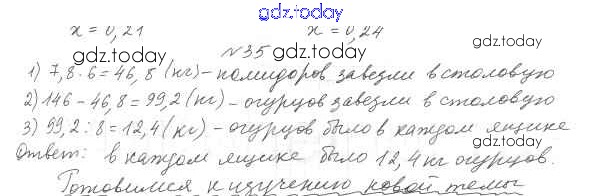 gdz.today
x = 0,21 x = 0,24
gdz.today №35 gdz.today
1) 7,8 · 6 = 46,8 (кг) – помидоров завезли в столовую
2) 146 – 46,8 = 99,2 (кг) – огурцов завезли в столовую
3) 99,2 : 8 = 12,4 (кг) – огурцов было в каждом ящике
Ответ: в каждом ящике было 12,4 кг огурцов.
Готовимся к изучению новой темы